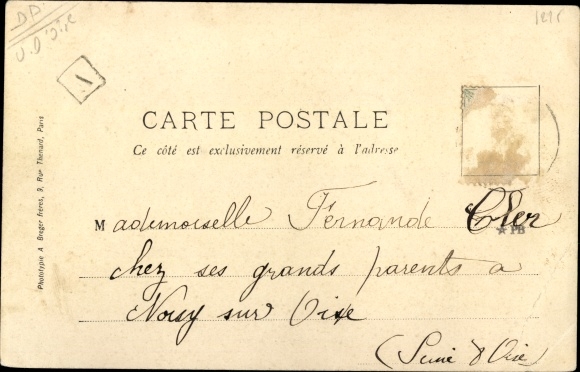 DD.
V. D'Oise
1
CARTE POSTALE
Ce côté est exclusivement réservé à l'adresse
Phototypie A Breger frères, 9, Rue Thenard, Paris
Mademoiselle Fernande Cler
PB
chez ses grands parents a
Noisy sur Oise
(Seine & Oise)